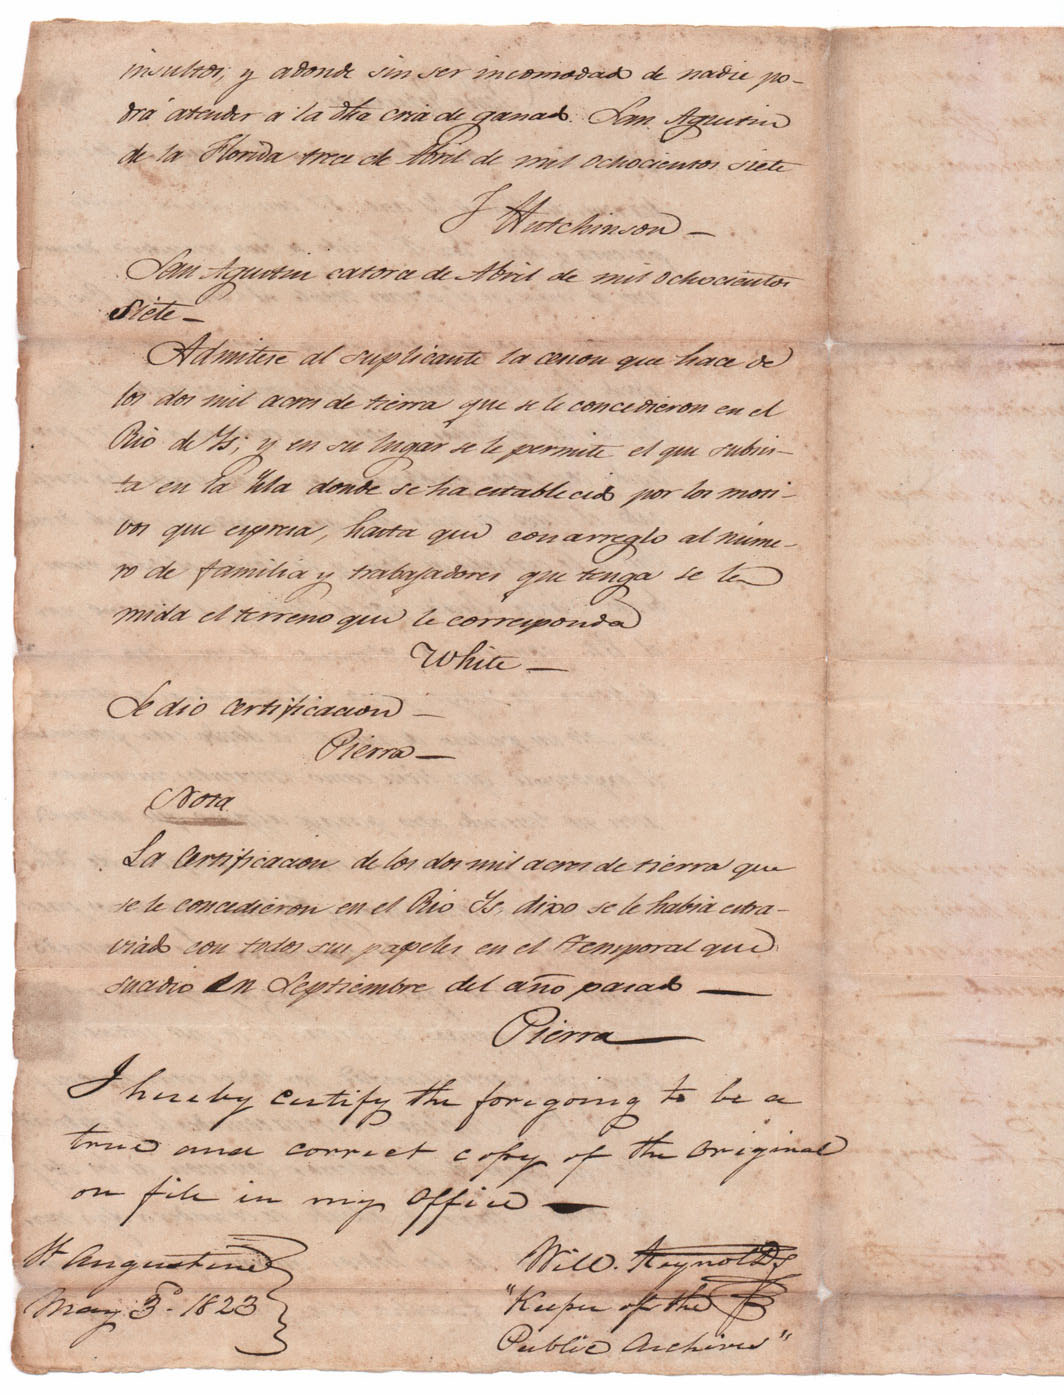 insultos, y adonde sin ser incomodado de nadie po-
drá atender a la dha cria de ganado. San Agustin
de la Florida trece de Abril de mil ochocientos siete
J Hutchinson —
San Agustin catorce de Abril de mil ochocientos
siete —
Admitese al suplicante la cesion que hace de
los dos mil acres de tierra que se le concedieron en el
Rio de Ys; y en su lugar se le permite el que subsis-
ta en la Ysla donde se ha establecido por los moti-
vos que espresa, hasta que con arreglo al núme-
ro de familia y trabajadores que tenga se le
mida el terreno que le corresponda
White —
Se dio certificacion —
Pierra —
Nota
La Certificacion de los dos mil acres de tierra que
se le concedieron en el Rio Ys, dixo se le habia estra-
viado con todos sus papeles en el temporal que
sucedio en Septiembre del año pasado —
Pierra —
I hereby certify the foregoing to be a
true and correct copy of the original
on file in my office —
St Augustine
May 3d. 1823
Will. Reynolds
"Keeper of the
Public Archives"